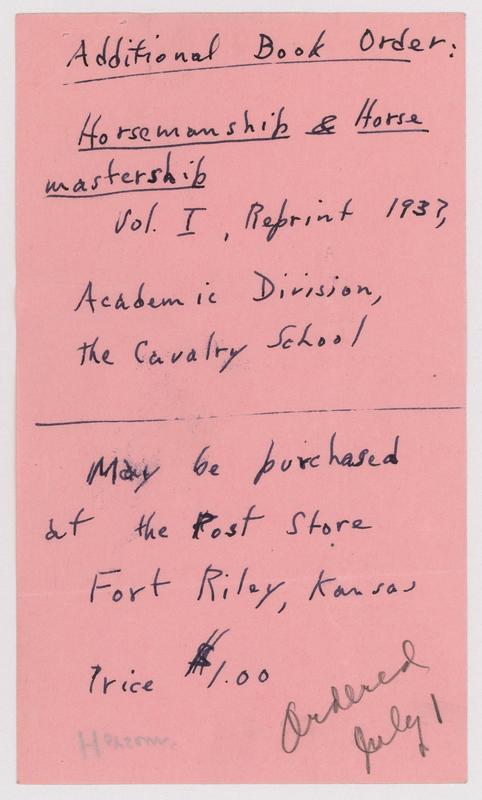 Additional Book Order:
Horsemanship & Horse
mastership
Vol. I, Reprint 1937,
Academic Division,
the Cavalry School
May be purchased
at the Post Store
Fort Riley, Kansas
Price $1.00
Ordered
July 1